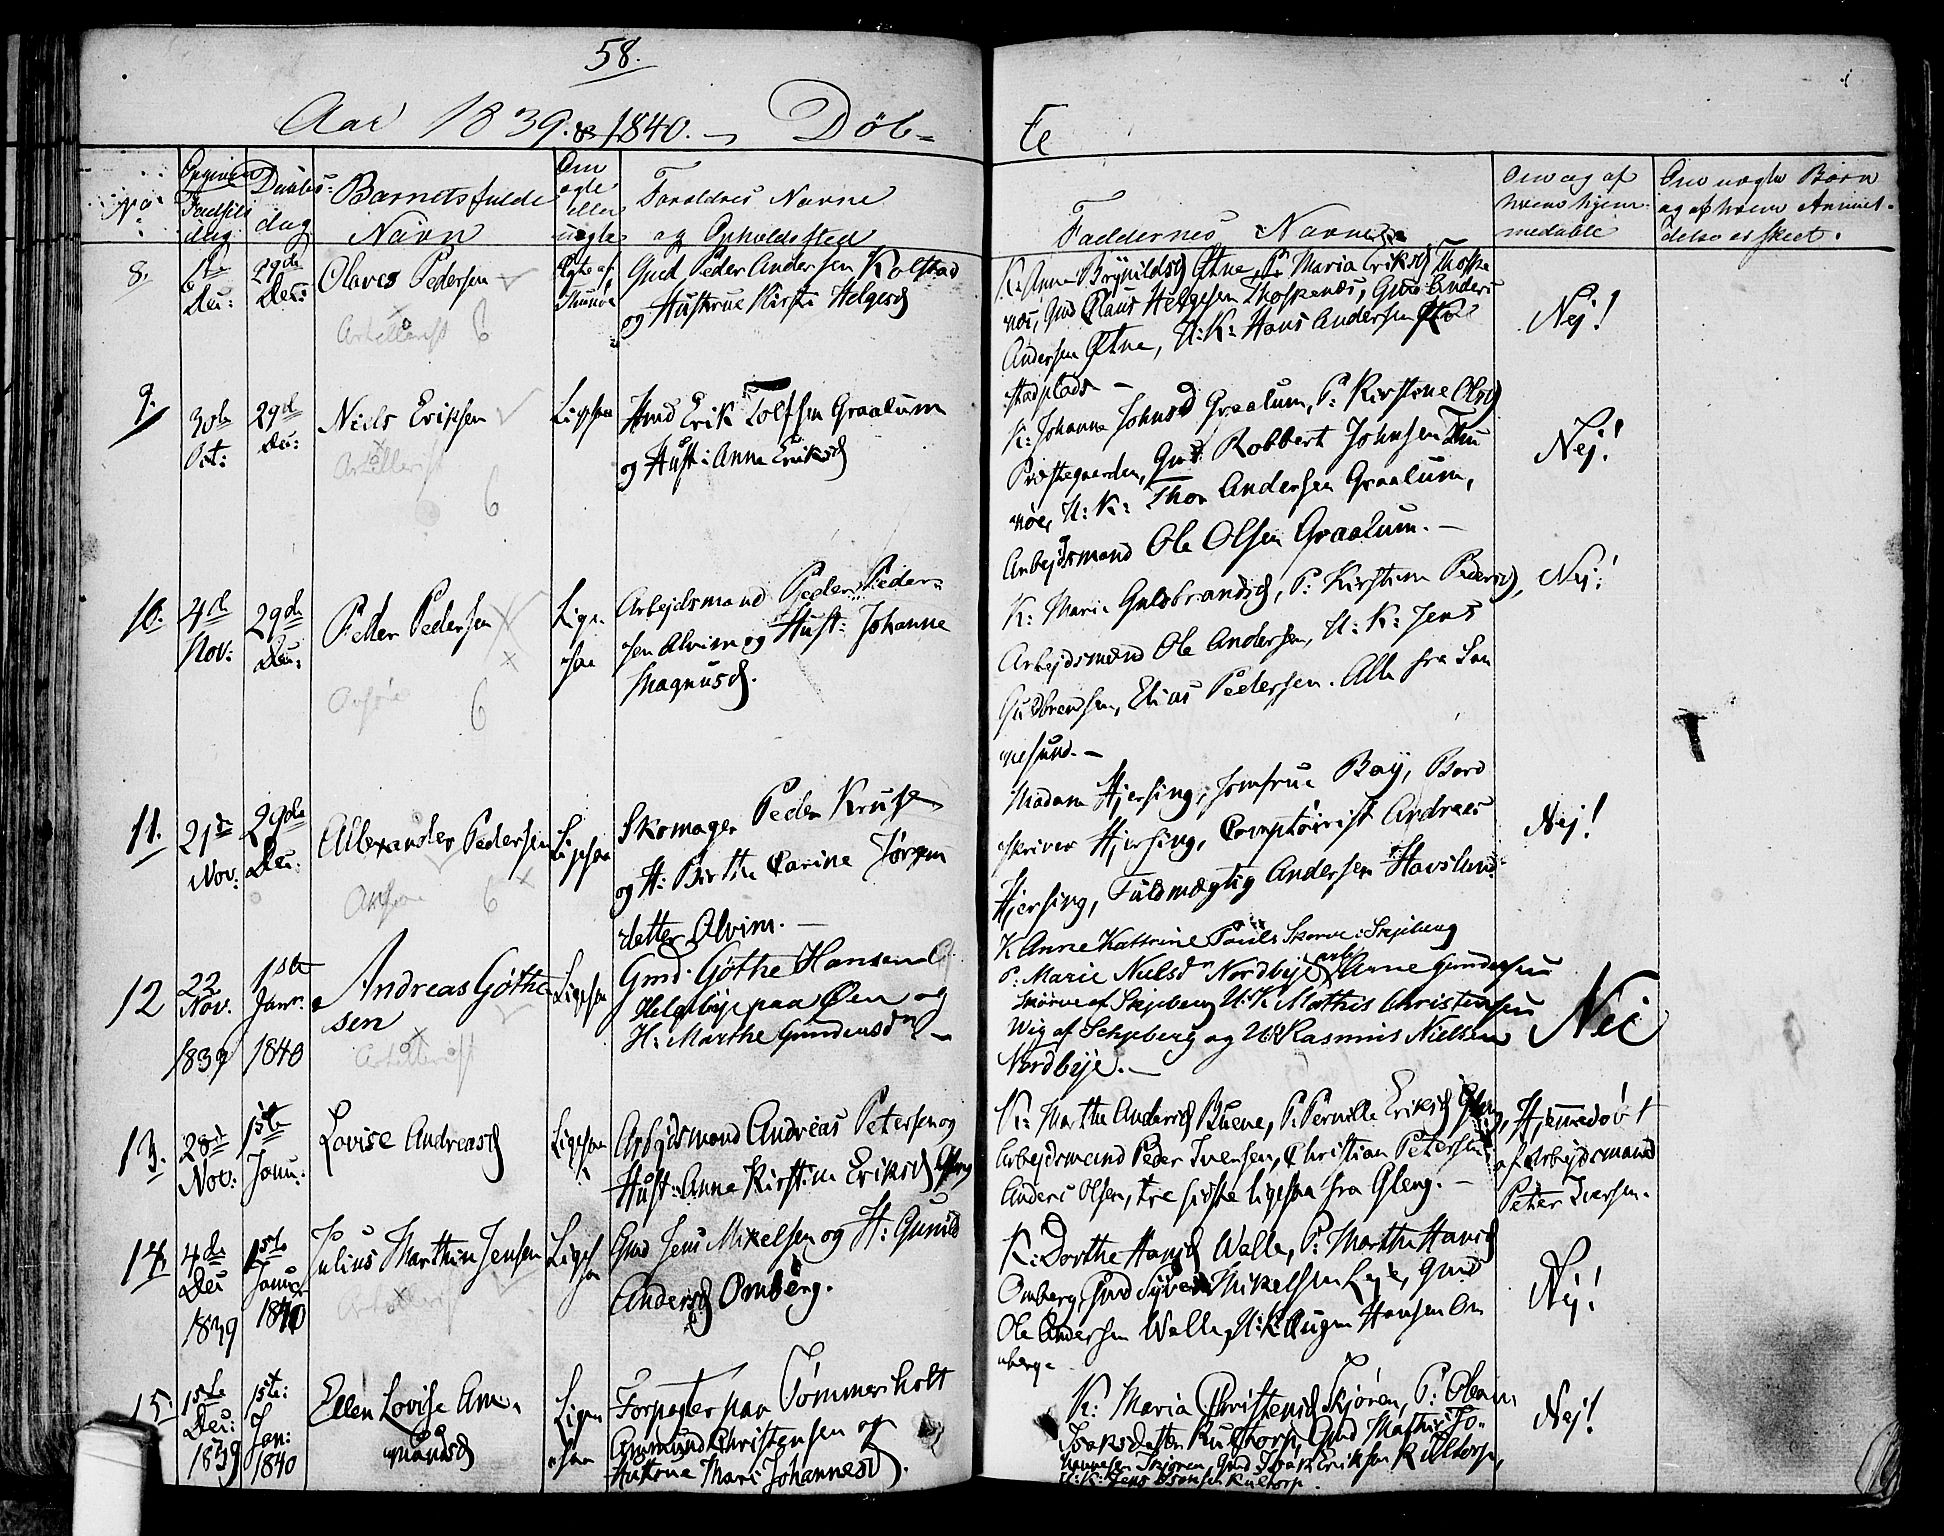 58.
Aar 1839. & 1840. — Døb-
te
No
Opgiven Fødsels dag
Daabs dag
Barnets fulde Navn
Om ægte eller uægte
Foreldres Navne og Opholdssted
Faddernes Navne
Om og af hvem hjemmedøbte
Om uægte Børn og af hvem Anmeldelse er skeet.
8.
1ste Dec:
29de Dec:
Olaves Pedersen
Artillerist 6
Ægte af
Gmd Peder Andersen Kolstad
og Hustrue Kirsti Helgesd
K: Anne Brynildsd Otne, P: Maria Eriksd
Gmd Claus Helgesen Gmd Anders
Andersen Otne, U: K: Hans Andersen
stadplads —
Nej!
9.
30te Oct:
29de Dec:
Niels Eriksen
Artillerist 6
Ligesaa
Hmd Erik Graalum
og Hust: Anne Eriksd
K: Johanne Johnsd Graalum, P: Kirstine Olsd
Præstegaarden, Gmd Robbert Johnsen Thu
nøe, U: K: Thor Andersen Graalum,
Arbejdsmand Ole Olsen Graalum. —
Nej!
10.
4de Nov:
29de Dec:
Peder Pedersen
6
Ligesaa
Arbejdsmand Peder Peder-
sen Alvim og Hust: Johanne
Magnusd.
K: Maria Guldbrandsd, P: Kirstine Pedersd,
Arbejdsmænd Ole Andersen, U: K: Jens
Guldbrandsen, Elias Pedersen. Alle fra San
nesund. —
Nej!
11.
21de Nov:
29de Dec:
Allexander Pedersen
6
Ligesaa
Skomager Peder Kruse
og H: Birthe Carine Jørgen
datter Alvim. —
Madam Hjersing, Jomfrue Bay, Bord
skriver Hjersing, Comptoirist Andreas
Hjersing, Fuldmægtig Andersen Havslund.
Nej!
12
22 Nov. 1839
1ste Janr. 1840
Andreas Gøthe
sen
Artillerist
Ligesaa
Gmd. Gøthe Hansen
Helgebye paa Øen og
H: Marthe Gundersdr —
K Anne Kattrine Pouls Skorve i Skjeberg
P: Marie Nielsdr Nordbye, Arb Arne Gundersen
Skorve af Skjeberg U: K Mathis Christensen
Wig af Schjeberg og U: K Rasmus Nielsen
Nordbye. —
Nei
13.
28de Nov:
1ste Janu:
Lovise Andreasd
Ligesaa
Arbejdsmand Andreas Petersen og
Hust: Anne Kirstine Eriksd Gleng
K: Marthe Andersd Buene, P. Pernille Eriksd Gleng,
Arbejdsmænd Peder Iversen, Christian Petersen
Anders Olsen, tre sidste ligesaa fra Gleng. —
Hjemmedøbt
af Arbejdsmand
Peter Iversen.
14.
4de Dec 1839
1ste Janu: 1840
Julius Marthin Jensen
Artillerist
Ligesaa
Gmd Jens Mikelsen og H: Gunild
Andersd Omberg.
K: Dorthe Hansd Walle, P: Marthe Hansd
Omberg, Gmd Syver Mikelsen Leje, Gmd
Ole Andersen Walle, U: K: Hansen Om
berg. —
Nej!
15.
1ste Dec: 1839
1ste: Jan: 1840
Ellen Lovise Am-
mundsd
Ligesaa
Forpagter paa Tømmerholt
Ammund Christensen og
Hustrue Mari Johannesd.
K: Maria Christensd Skjøren, P: Olea
Isaksdatter Kultorp, Gmd Mathis Jo-
hannesen Skjøren, Gmd Isak Eriksen Kultorp,
U: K: Jens Kultorp.
Nej!